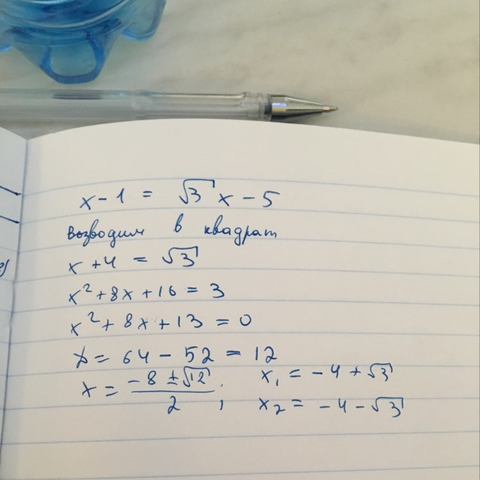 x - 1 = √3 x - 5
возводим в квадрат
x + 4 = √3
x² + 8x + 16 = 3
x² + 8x + 13 = 0
D = 64 - 52 = 12
x = (-8 ± √12)/2 ; x₁ = -4 + √3
x₂ = -4 - √3